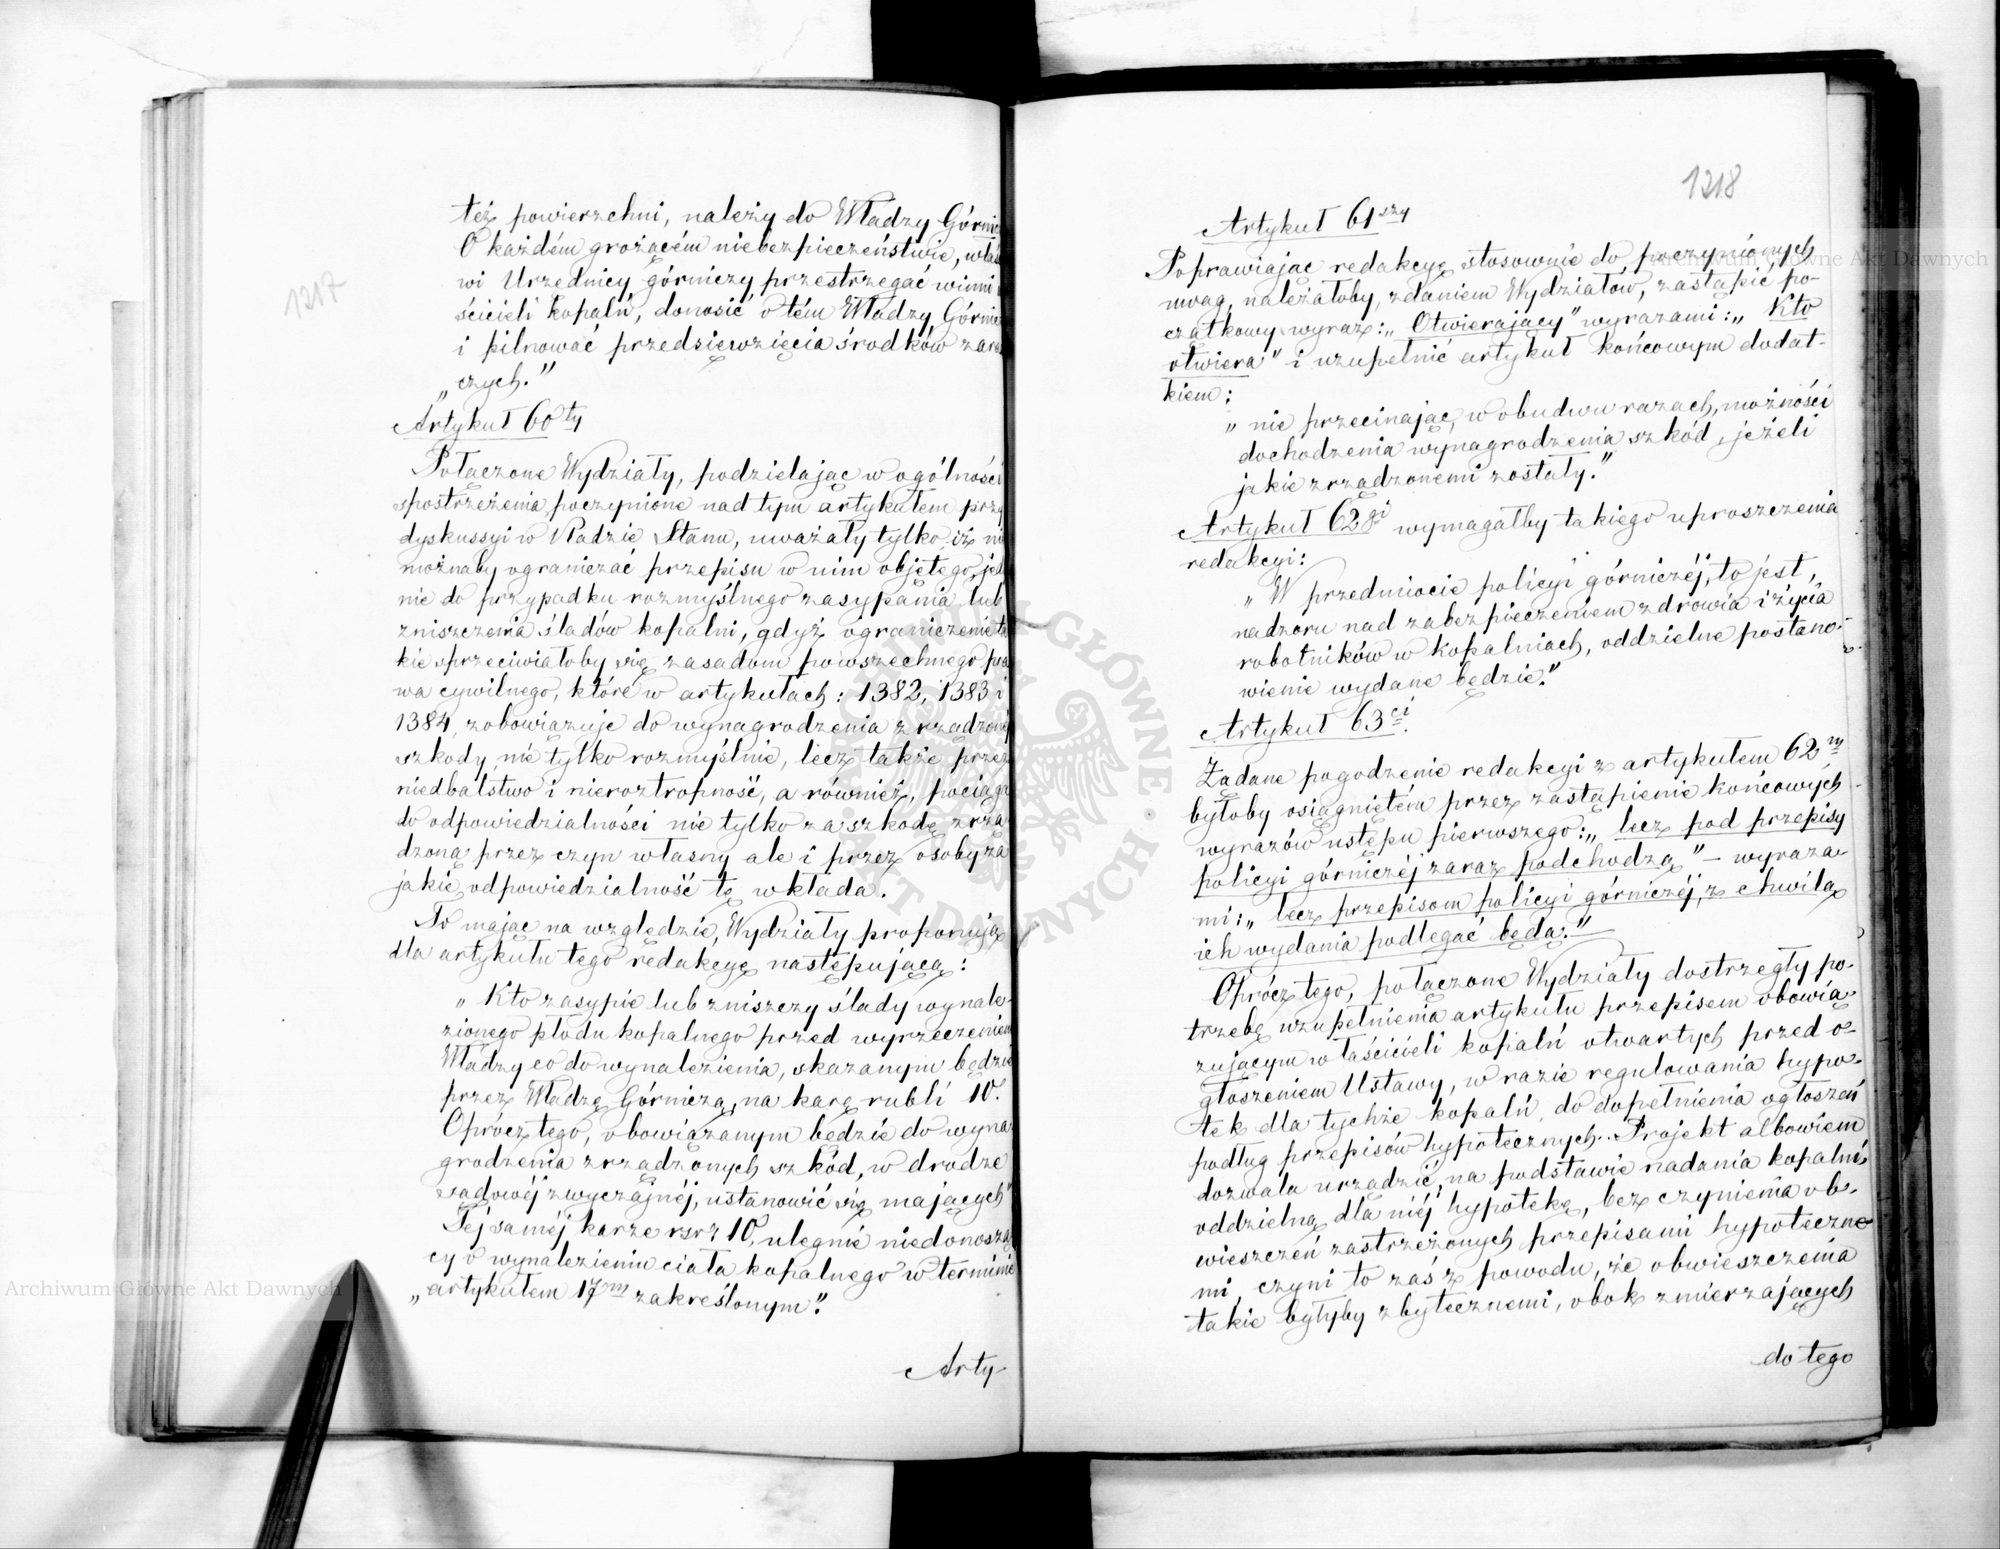 1217
też powierzchni, należy do Władzy Górni
O każdém grożącém niebezpieczeństwie, właś
wi Urzędnicy górniczy przestrzegać winni
ścicieli kopalń, donosić o tém Władzy Górni
i pilnować przedsięwzięcia środków zara
„czych."
Artykuł 60ty
Połączone Wydziały, podzielając w ogólności
spostrzeżenia poczynione nad tym artykułem przy
dyskussyi w Radzie Stanu, uważały tylko, iż ni
możnaby ograniczać przepisu w nim objętego, jed
nie do przypadku rozmyślnego zasypania lub
zniszczenia śladów kopalni, gdyż ograniczenie ta
kie sprzeciwiałoby się zasadom powszechnego pra
wa cywilnego, które w artykułach: 1382, 1383 i
1384, zobowiązuje do wynagrodzenia zrządzonéj
szkody nie tylko rozmyślnie, lecz także przez
niedbalstwo i nieroztropność, a również, pociąga
do odpowiedzialności nie tylko za szkodę zrzą
dzoną przez czyn własny ale i przez osoby za
jakie odpowiedzialność tę wkłada.
To mając na względzie, Wydziały proponują
dla artykułu tego redakcyę następującą:
„Kto zasypie lub zniszczy ślady wynale-
zionego płodu kopalnego przed wyrzeczeniem
Władzy co do wynalezienia, skazanym będzie
przez Władzę Górniczą, na karę rubli 10.
Oprócz tego, obowiązanym będzie do wyna
grodzenia zrządzonych szkód, w drodze
sądowéj zwyczajnéj, ustanowić się mających"
Téj saméj karze rsr 10, ulegnie niedonoszą
cy o wynalezieniu ciała kopalnego w terminie
„artykułem 17m zakreślonym".
Arty-
1218
Artykuł 61szy
Poprawiając redakcyę stosownie do poczynionych
uwag, należałoby, zdaniem Wydziałów, zastąpić po-
czątkowy wyraz: „Otwierający" wyrazami: „Kto
otwiera" i uzupełnić artykuł końcowym dodat-
kiem:
„nie przecinając, w obudwu razach, możności
dochodzenia wynagrodzenia szkód, jeżeli
jakie zrządzonemi zostały."
Artykuł 62gi wymagałby takiego uproszczenia
redakcyi:
„W przedmiocie policyi górniczéj, to jest,
nadzoru nad zabezpieczeniem zdrowia i życia
robotników w kopalniach, oddzielne postano-
wienie wydane będzie."
Artykuł 63ci.
Żądane pogodzenie redakcyi z artykułem 62m
byłoby osiągniętém przez zastąpienie końcowych
wyrazów ustępu pierwszego: „lecz pod przepisy
policyi górniczéj zaraz podchodzą" – wyraza-
mi: „lecz przepisom policyi górniczéj, z chwilą
ich wydania podlegać będą."
Oprócz tego, połączone Wydziały dostrzegły po-
trzebę uzupełnienia artykułu przepisem obowią-
zującym właścicieli kopalń otwartych przed o-
głoszeniem Ustawy, w razie regulowania hypo-
tek dla tychże kopalń, do dopełnienia ogłoszeń
podług przepisów hypotecznych. Projekt albowiem
dozwala urządzić, na podstawie nadania kopalni,
oddzielną dla niéj hypotekę, bez czynienia ob-
wieszczeń zastrzeżonych przepisami hypoteczne
mi, czyni to zaś z powodu, że obwieszczenia
takie byłyby zbytecznemi, obok zmierzających
do tego
Archiwum Główne Akt Dawnych
Archiwum Główne Akt Dawnych